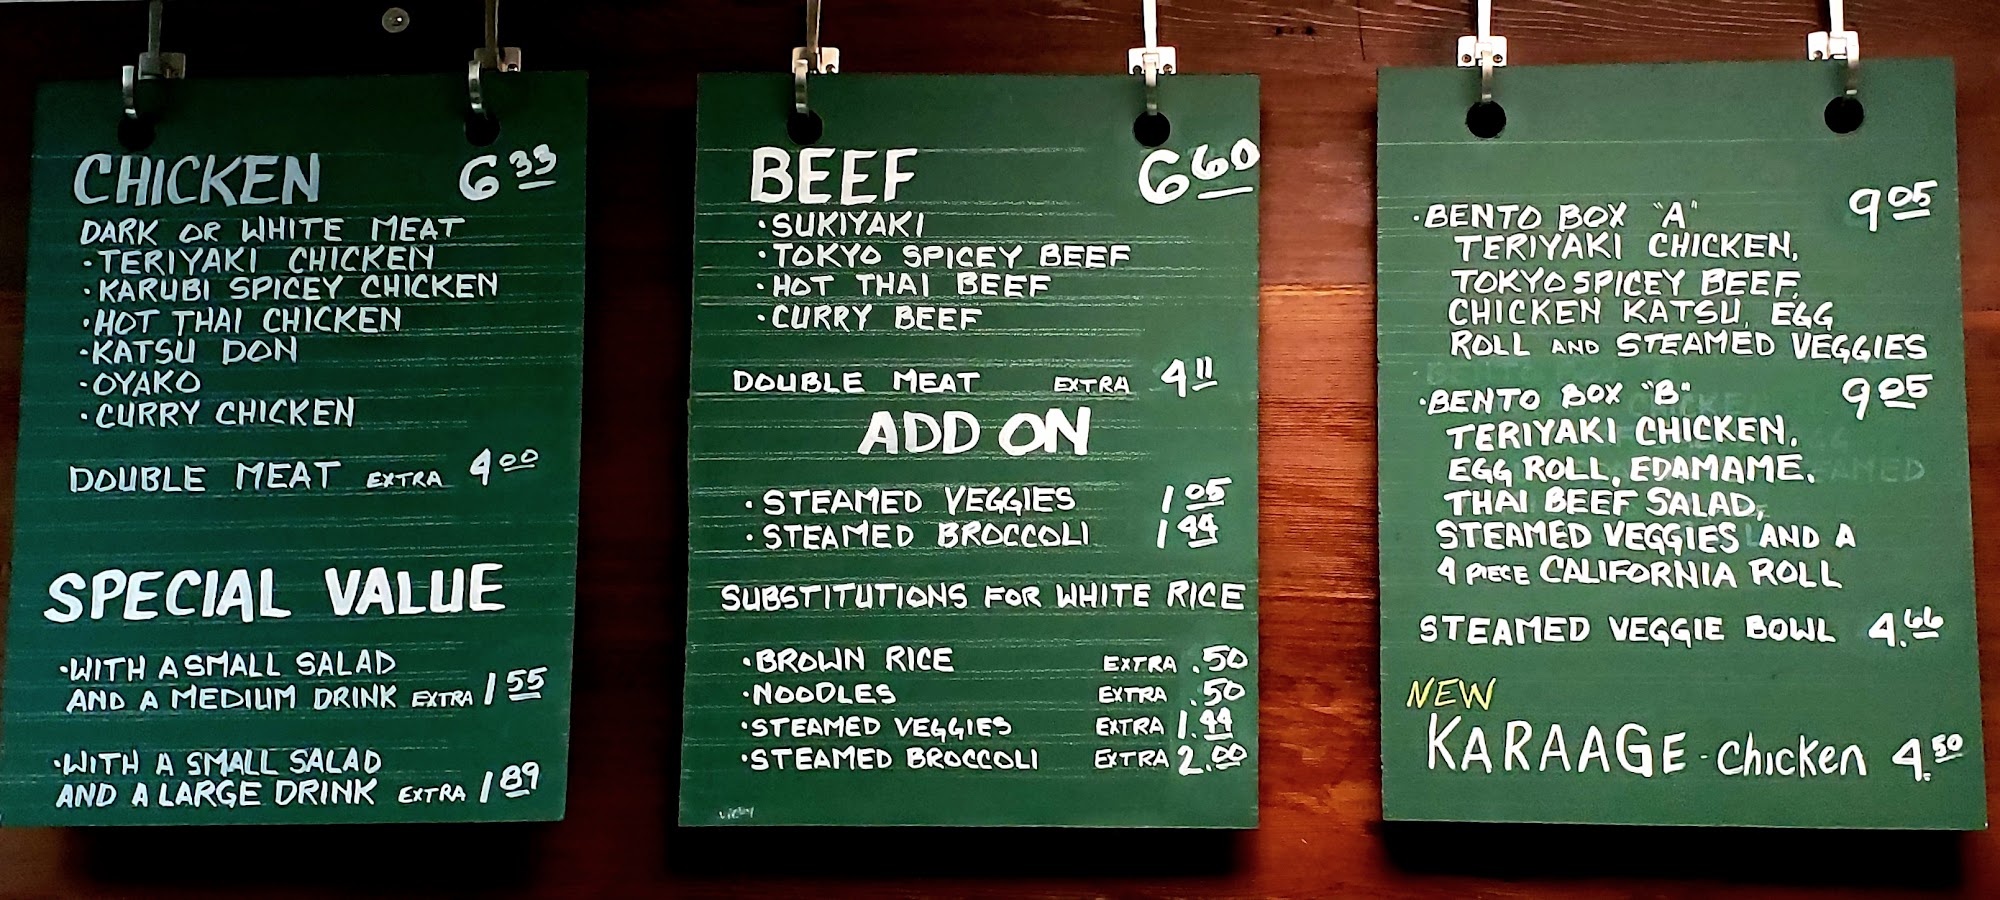 CHICKEN 6 33
DARK OR WHITE MEAT
·TERIYAKI CHICKEN
·KARUBI SPICEY CHICKEN
·HOT THAI CHICKEN
·KATSU DON
·OYAKO
·CURRY CHICKEN
DOUBLE MEAT EXTRA 4 00
SPECIAL VALUE
·WITH A SMALL SALAD
AND A MEDIUM DRINK EXTRA 1 55
·WITH A SMALL SALAD
AND A LARGE DRINK EXTRA 1 89
BEEF 6 60
·SUKIYAKI
·TOKYO SPICEY BEEF
·HOT THAI BEEF
·CURRY BEEF
DOUBLE MEAT EXTRA 4 11
ADD ON
·STEAMED VEGGIES 1 05
·STEAMED BROCCOLI 1 44
SUBSTITUTIONS FOR WHITE RICE
·BROWN RICE EXTRA .50
·NOODLES EXTRA .50
·STEAMED VEGGIES EXTRA 1.44
·STEAMED BROCCOLI EXTRA 2.00
·BENTO BOX "A" 9 05
TERIYAKI CHICKEN,
TOKYO SPICEY BEEF,
CHICKEN KATSU, EGG
ROLL AND STEAMED VEGGIES
·BENTO BOX "B" 9 05
TERIYAKI CHICKEN,
EGG ROLL, EDAMAME,
THAI BEEF SALAD,
STEAMED VEGGIES AND A
4 PIECE CALIFORNIA ROLL
STEAMED VEGGIE BOWL 4.66
NEW
KARAAGE - Chicken 4.50